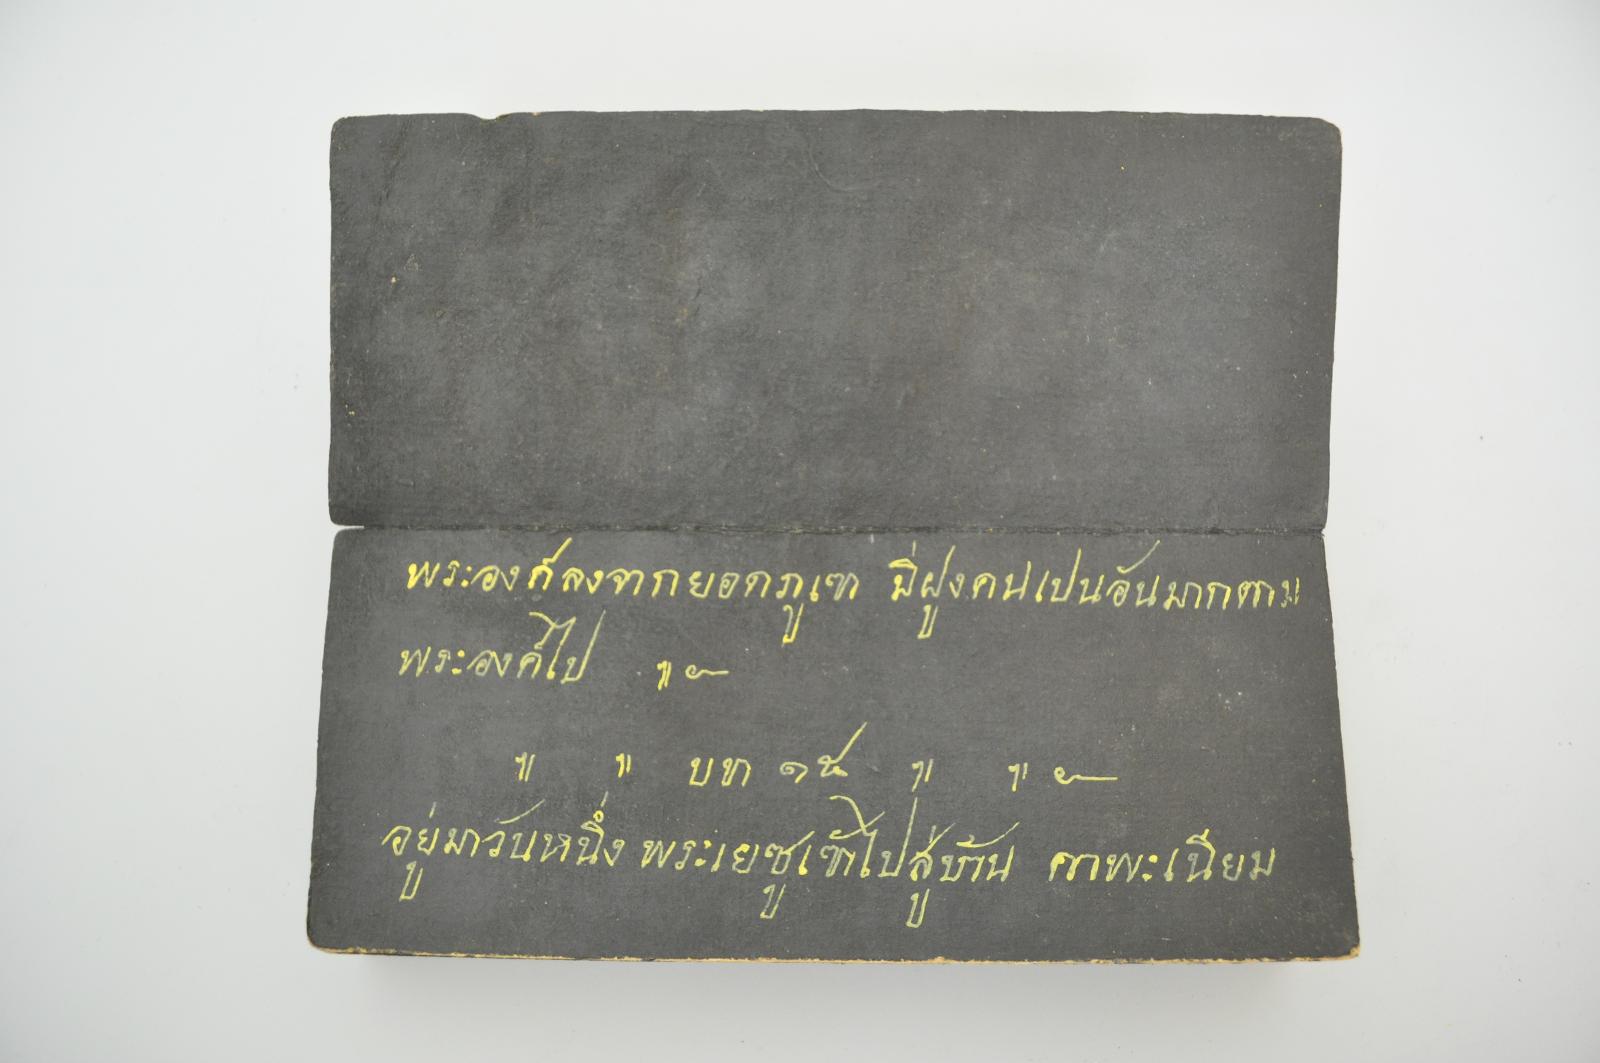 พระองค์ลงจากยอดภูเขา มีฝูงคนเปนอันมากตาม
พระองค์ไป ๚ะ
๚ ๚ บท ๑๕ ๚ ๚ะ
อยู่มาวันหนึ่ง พระเยซูเข้าไปสู่บ้าน คาพะเนียม